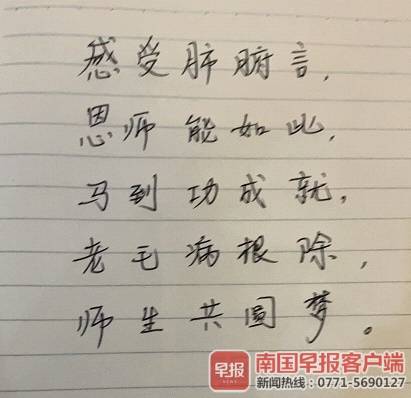 感受肺腑言，
恩师能如此，
马到功成就，
老毛病根除，
师生共圆梦。
早报 南国早报客户端
NEWS 新闻热线：0771-5690127